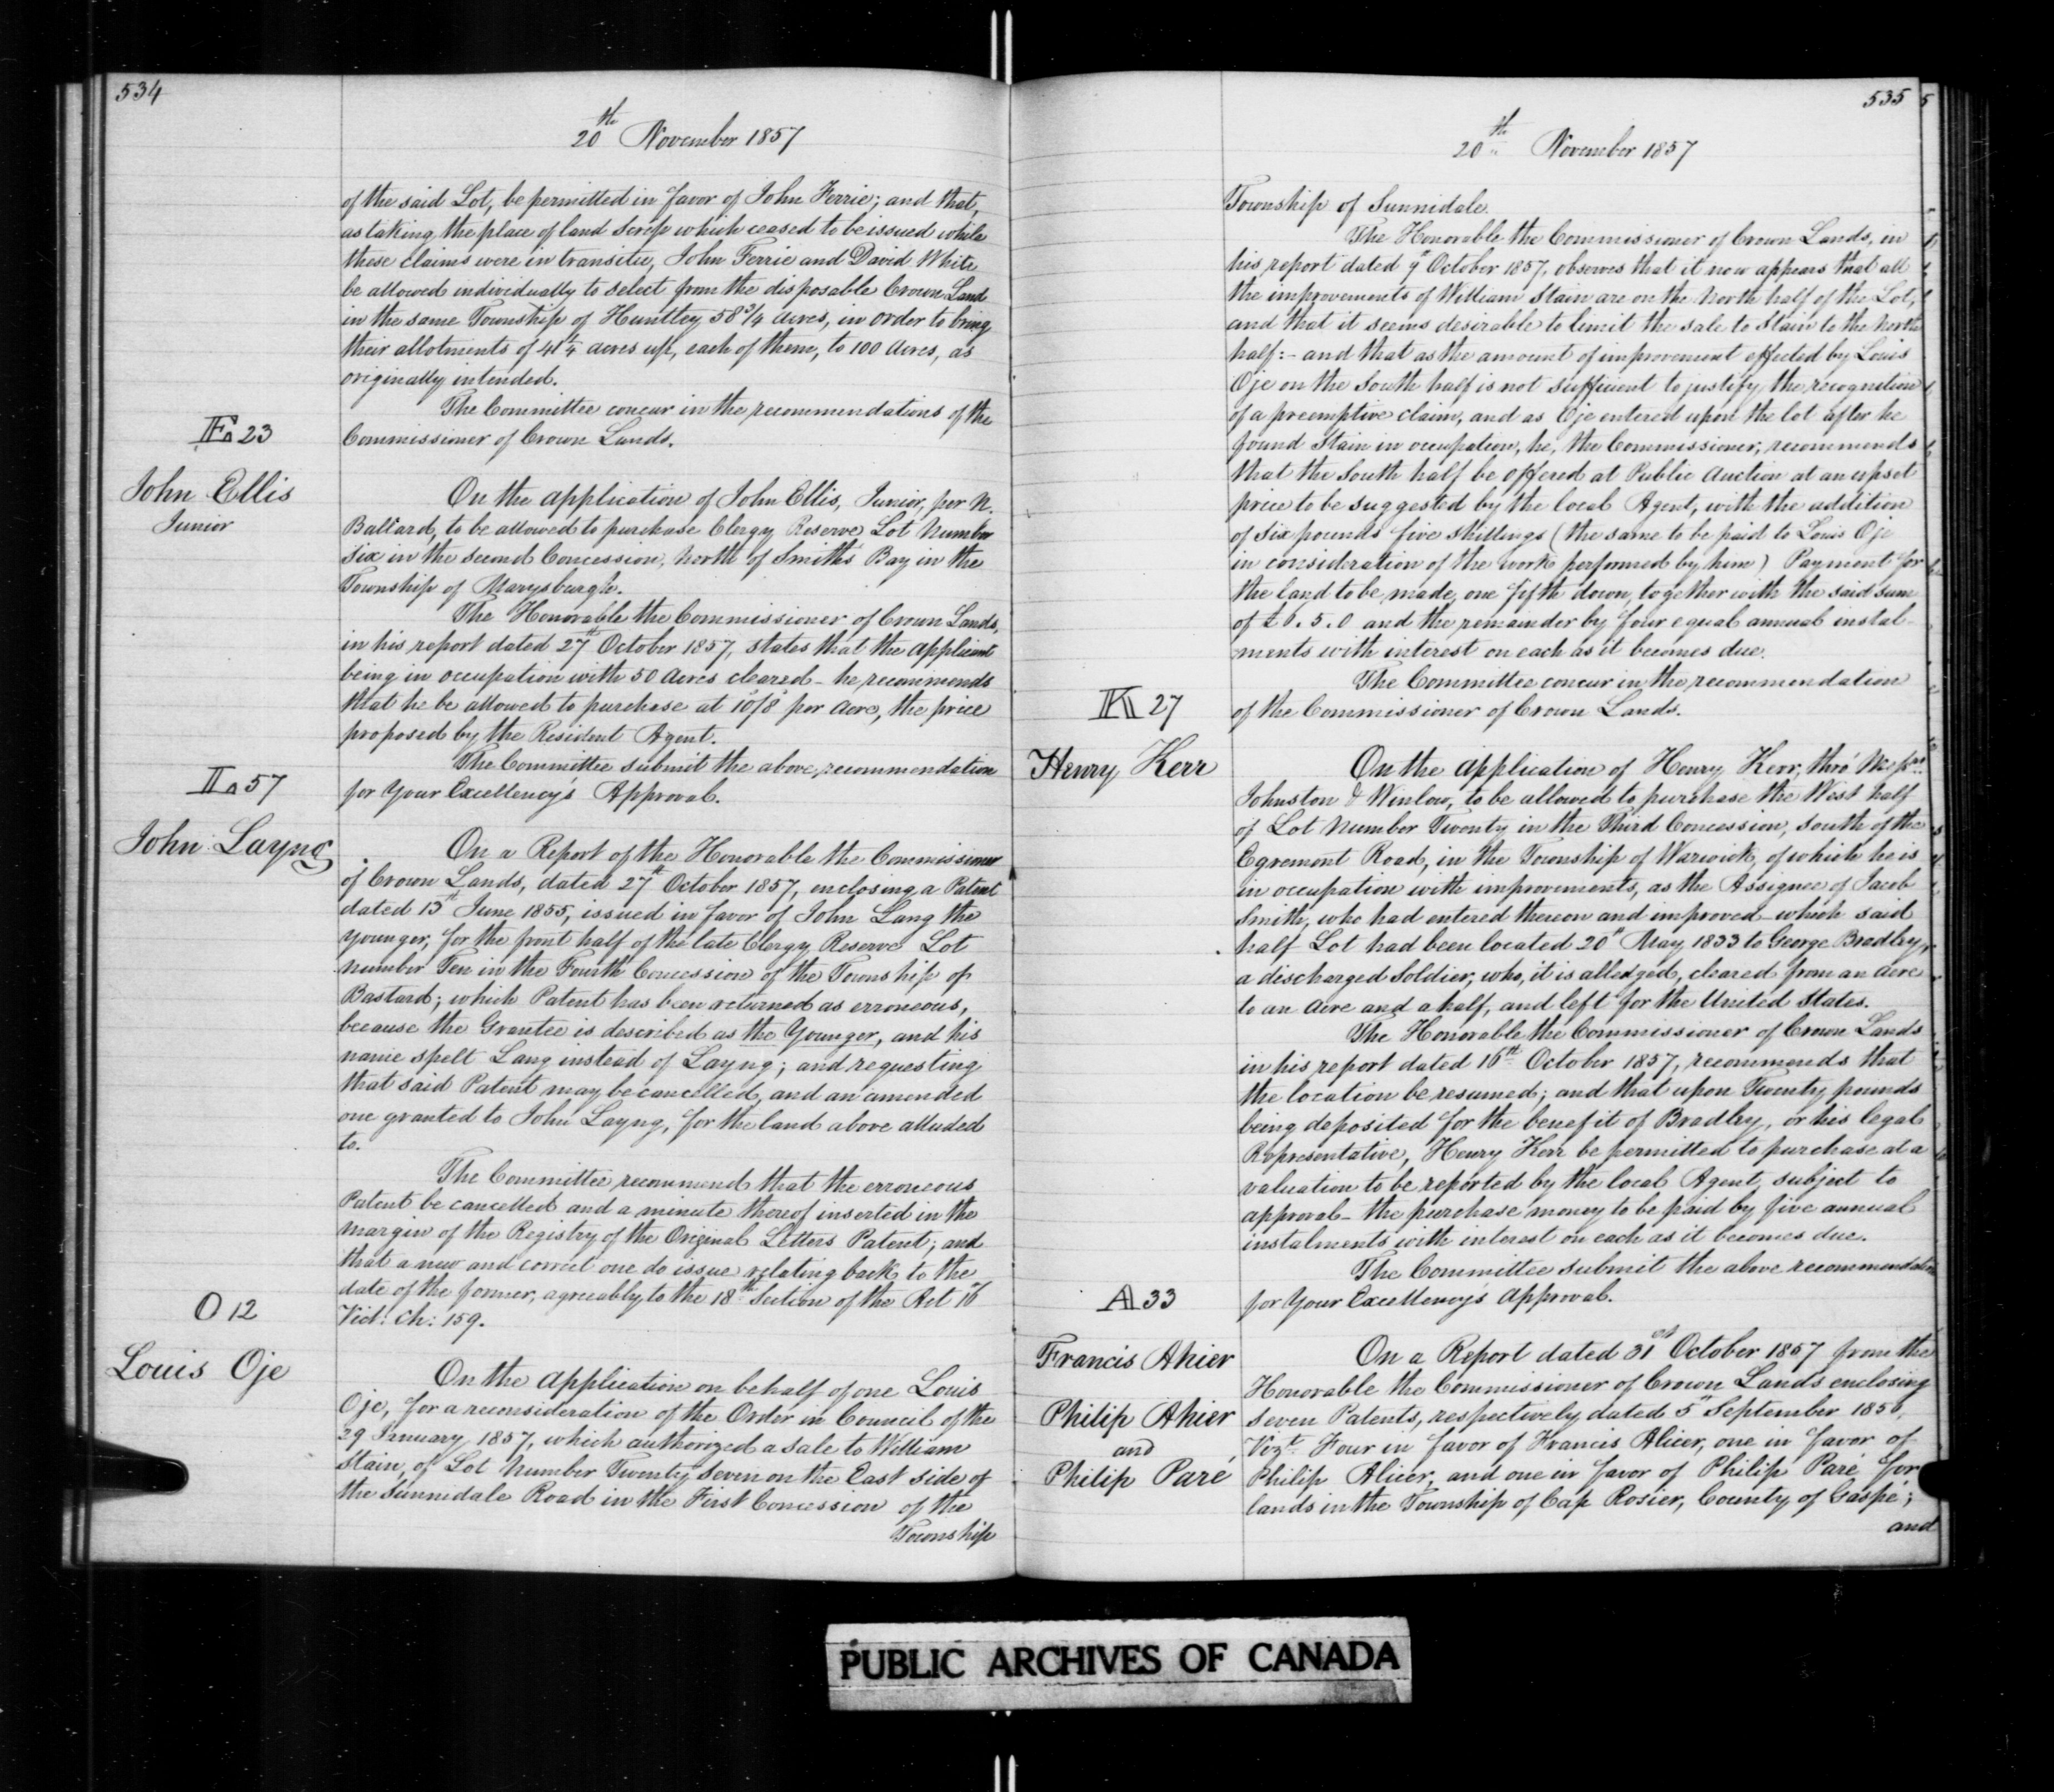 534
20th November 1857
of the said Lot, be permitted in favor of John Ferrie; and that,
as taking the place of land Scrip which ceased to be issued while
these claims were in transitu, John Ferrie and David White
be allowed individually to select from the disposable Crown Land
in the same Township of Huntley 58 3/4 Acres, in order to bring
their allotments of 41 1/4 acres up, each of them, to 100 Acres, as
originally intended.
The Committee concur in the recommendations of the
Commissioner of Crown Lands.
E 23
John Ellis
Junior
On the application of John Ellis, Junior, per N.
Ballard, to be allowed to purchase Clergy Reserve Lot Number
Six in the Second Concession, North of Smith's Bay in the
Township of Marysburgh.
The Honorable the Commissioner of Crown Lands,
in his report dated 27th October 1857, states that the applicant
being in occupation with 50 Acres cleared - he recommends
that he be allowed to purchase at 10/8 per Acre, the price
proposed by the Resident Agent.
The Committee submit the above recommendation
for Your Excellency's Approval.
L 57
John Layng
On a Report of the Honorable the Commissioner
of Crown Lands, dated 27th October 1857, enclosing a Patent
dated 13th June 1855, issued in favor of John Lang the
younger, for the front half of the late Clergy Reserve Lot
number Ten in the Fourth Concession of the Township of
Bastard; which Patent has been returned as erroneous,
because the Grantee is described as the Younger, and his
name spelt Lang instead of Layng; and requesting
that said Patent may be cancelled, and an amended
one granted to John Layng, for the land above alluded
to.
The Committee recommend that the erroneous
Patent be cancelled and a minute thereof inserted in the
margin of the Registry of the Original Letters Patent; and
that a new and correct one do issue relating back to the
date of the former, agreeably to the 18th Section of the Act 16
Vict: Ch: 159.
O 12
Louis Oje
On the application on behalf of one Louis
Oje, for a reconsideration of the Order in Council of the
29 January 1857, which authorized a sale to William
Stain, of Lot Number Twenty Seven on the East side of
the Sunnidale Road in the First Concession of the
Township
535
20th November 1857
Township of Sunnidale.
The Honorable the Commissioner of Crown Lands, in
his report dated 9th October 1857, observes that it now appears that all
the improvements of William Stain are on the North half of the Lot,
and that it seems desirable to limit the sale to Stain to the North
half:- and that as the amount of improvement effected by Louis
Oje on the South half is not sufficient to justify the recognition
of a preemptive claim, and as Oje entered upon the lot after he
found Stain in occupation, he, the Commissioner, recommends
that the South half be offered at Public Auction at an upset
price to be suggested by the local Agent, with the addition
of Six pounds five shillings (the same to be paid to Louis Oje
in consideration of the work performed by him) Payment for
the land to be made, one fifth down, together with the said sum
of £6.5.0 and the remainder by four equal annual instal-
ments with interest on each as it becomes due.
The Committee concur in the recommendation
of the Commissioner of Crown Lands.
K 27
Henry Kerr
On the application of Henry Kerr, thro' Messrs
Johnston & Winlow, to be allowed to purchase the West half
of Lot Number Twenty in the Third Concession, South of the
Egremont Road, in the Township of Warwick, of which he is
in occupation with improvements, as the Assignee of Jacob
Smith, who had entered thereon and improved - which said
half Lot had been located 20th May 1833 to George Bradley,
a discharged Soldier, who, it is alledged, cleared from an acre
to an Acre and a half, and left for the United States.
The Honorable the Commissioner of Crown Lands
in his report dated 16th October 1857, recommends that
the location be resumed; and that upon Twenty pounds
being deposited for the benefit of Bradley, or his legal
Representative, Henry Kerr be permitted to purchase at a
valuation to be reported by the local Agent, subject to
approval - the purchase money to be paid by five annual
instalments with interest on each as it becomes due.
The Committee submit the above recommendation
for Your Excellency's Approval.
A 33
Francis Ahier
Philip Ahier
and
Philip Paré
On a Report dated 31st October 1857 from the
Honorable the Commissioner of Crown Lands enclosing
Seven Patents, respectively dated 5th September 1856,
Vizt Four in favor of Francis Alier, one in favor of
Philip Alier, and one in favor of Philip Paré for
lands in the Township of Cap Rosier, County of Gaspé;
and
PUBLIC ARCHIVES OF CANADA